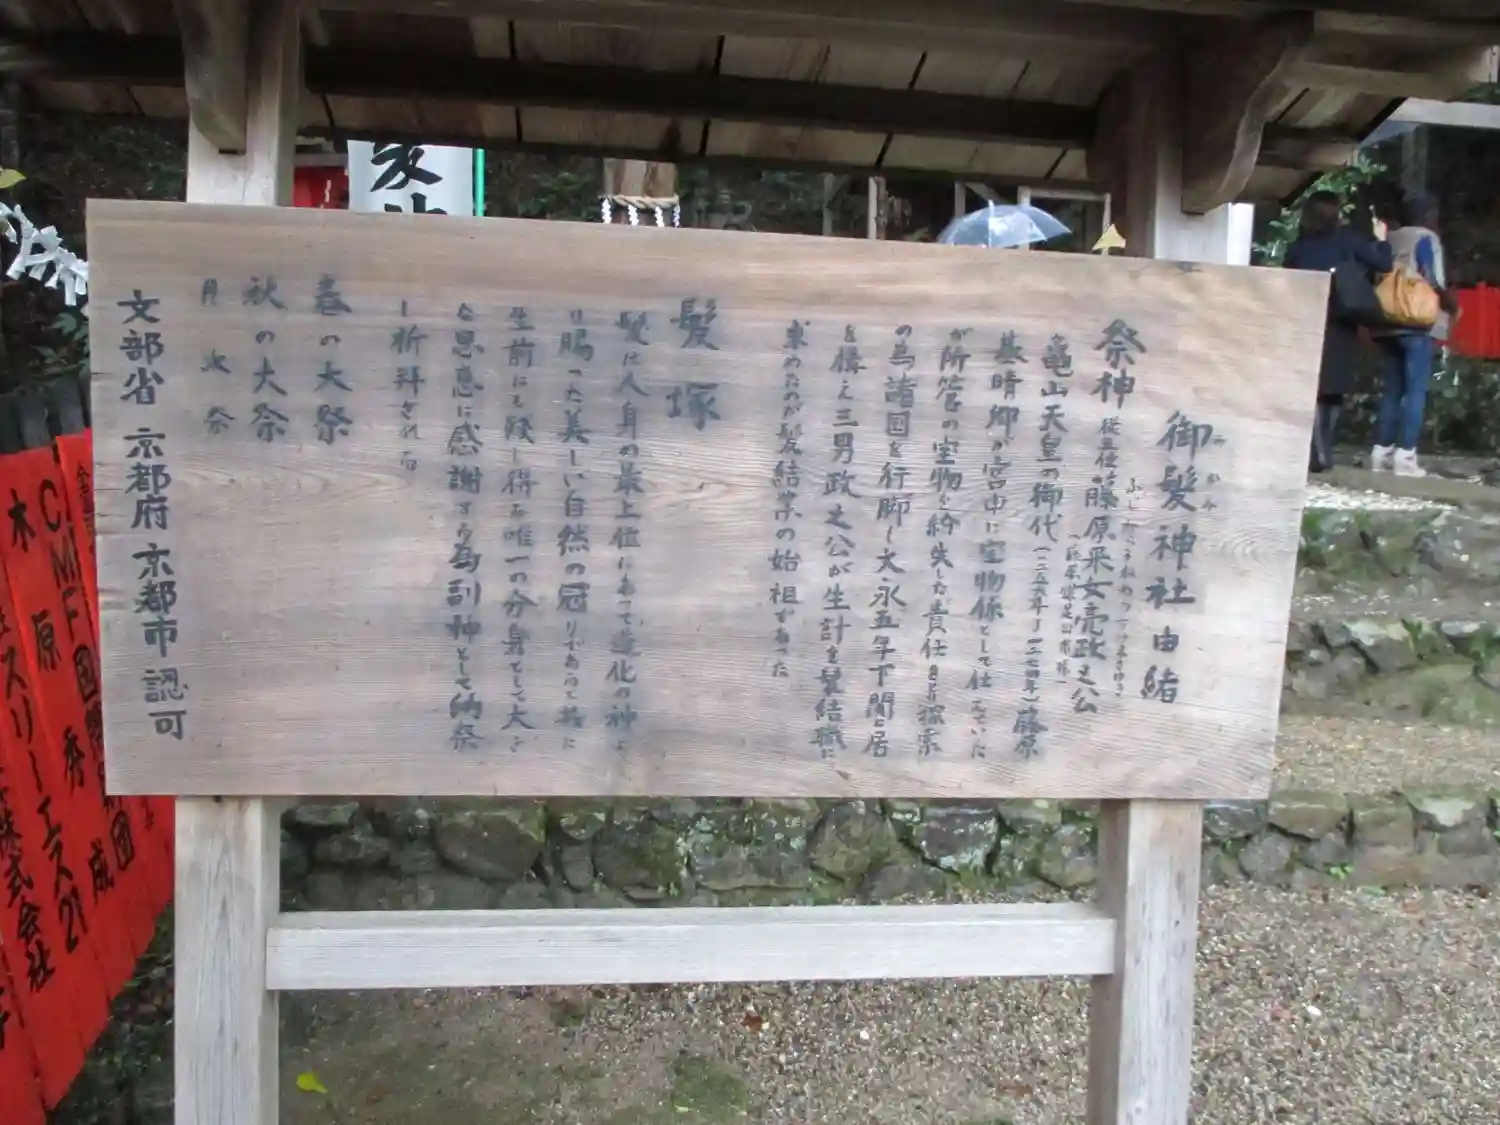 御髪神社由緒
みかみ
祭神 従五位 藤原采女亮政之公
(藤原 晴公
亀山天皇の御代(一二五九年~一二七四年)藤原
基晴卿が宮中に宝物係として仕えていた
が所管の宝物を紛失した責任を 探索
の為諸国を行脚し文永五年下関に居
を構え三男政之公が生計を髪結職に
求めたのが髪結業の始祖であった
髪塚
髪は人身の最上位にあって造化の神よ
り賜った美しい自然の冠りであって故に
生前にも残し得る唯一の分身として大き
な恩恵に感謝する為副神として納祭
し祈拝され
春の大祭
秋の大祭
月次祭
文部省 京都府 京都市 認可
CMF
原 秀 成
木
スリーエス21
株式会社